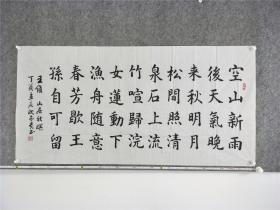 空山新雨
後天氣晚
来秋明月
松間照清
泉石上流
竹喧歸浣
女蓮動下
漁舟随意
春芳歇王
孫自可留
王維 山居秋暝
丁酉 書